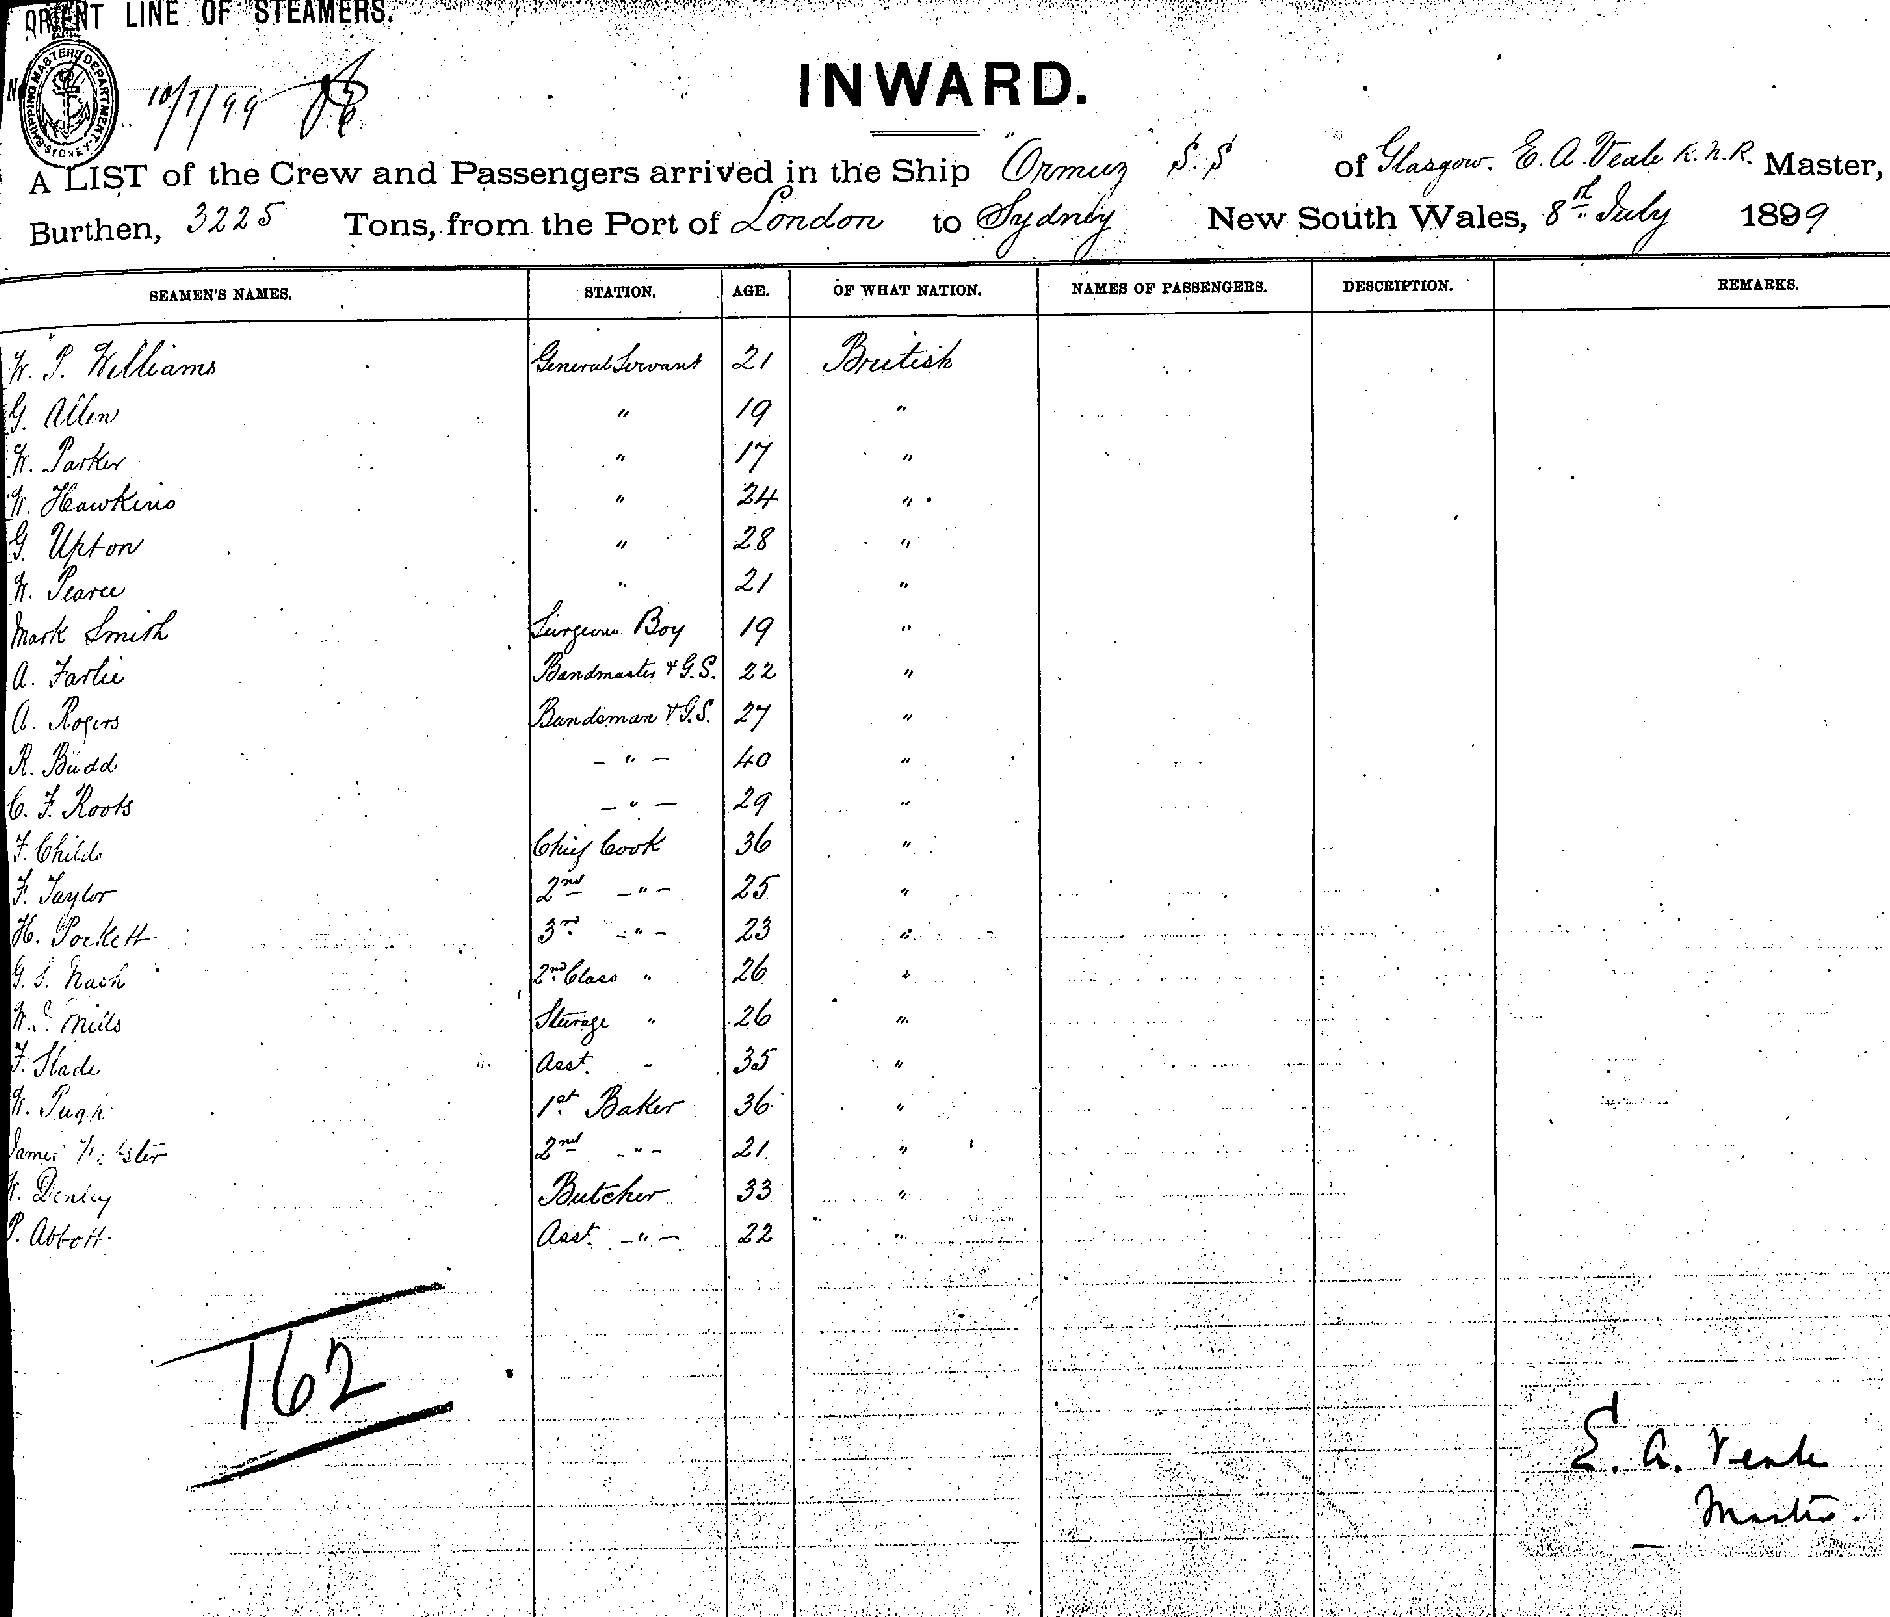 ORIENT LINE OF STEAMERS.
SHIPPING MASTERS DEPARTMENT SYDNEY
10/7/99
INWARD.
A LIST of the Crew and Passengers arrived in the Ship "Ormuz S.S of Glasgow. E. A. Veale R.N.R. Master,
Burthen, 3225 Tons, from the Port of London to Sydney New South Wales, 8th July 1899
SEAMEN'S NAMES. STATION. AGE. OF WHAT NATION. NAMES OF PASSENGERS. DESCRIPTION. REMARKS.
W. P. Williams General Servant 21 British
G. Allen " 19 "
W. Parker " 17 "
W. Hawkins " 24 "
G. Upton " 28 "
W. Pearce " 21 "
Mark Smith Surgeons Boy 19 "
A. Farlie Bandmaster & G.S. 22 "
A. Rogers Bandsman & G.S. 27 "
R. Budd - " - 40 "
C. F. Roots - " - 29 "
F. Childs Chief Cook 36 "
F. Taylor 2nd - " - 25 "
H. Pockett 3rd - " - 23 "
G. S. Nash 2nd Class " 26 "
W. Mills Sterage " 26 "
F. Slade Asst. " 35 "
W. Pugh 1st Baker 36 "
James 2nd - " - 21 "
W. Denley Butcher 33 "
P. Abbott Asst. - " - 22 "
162
E. A. Veale
Master.